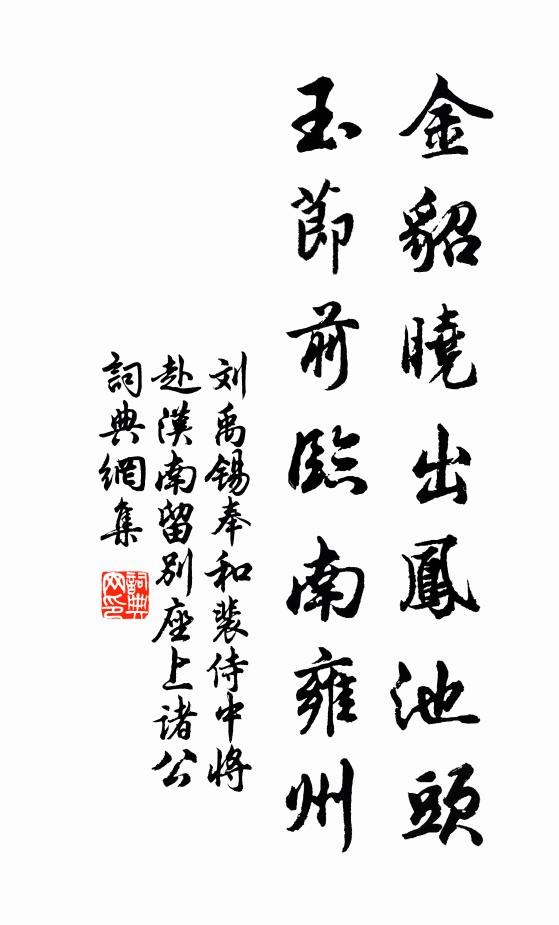 金貂曉出鳳池頭
玉節前臨南雍州
刘禹锡奉和裴侍中将
赴漢南留別座上诸公
詞典網集
詞典网印